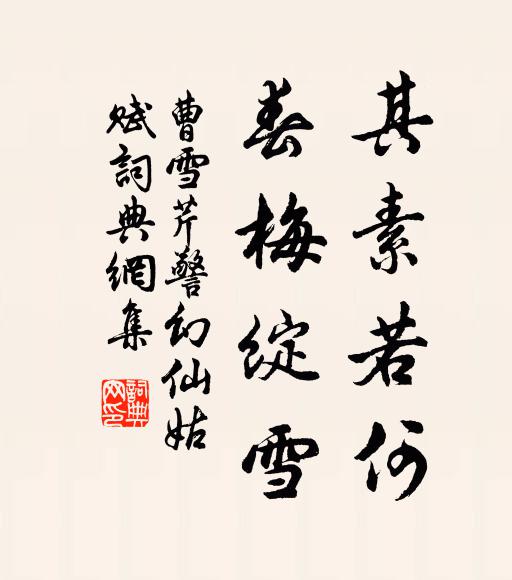 其素若何
春梅綻雪
曹雪芹警幻仙姑
賦詞典網集
詞典
网印